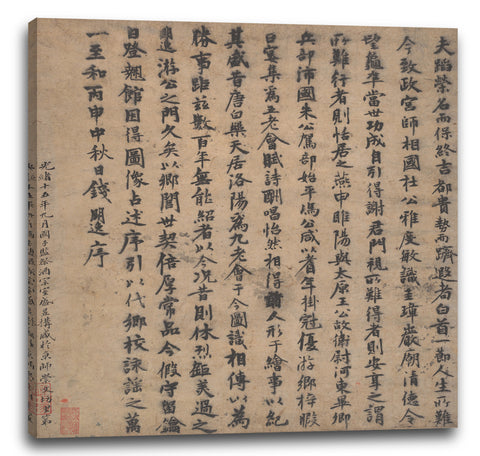 夫蹈榮名而保終吉都貴勢而躋遐耇白首一節人生所難
今致政宮師相國杜公雅度敏識圭璋巖廟清德令
望龜準當世功成自引得謝君門視所難得者則安享之謂
所難行者則恬居之燕申睢陽與太原王公故衛尉河東畢卿
兵部沛國朱公駕部始平馮公咸以耆年掛冠優游鄉梓暇
日宴集為五老會賦詩酬唱怡然相得諸人形于繪事以紀
其盛昔唐白樂天居洛陽為九老會于今圖識相傳以為
勝事距玆數百年無能紹者以今況昔則休烈鉅美過之
明逸游公之門久矣以鄉閭世契倍厚常品今假守留鑰
日登翹館因得圖像占述序引以代鄉校詠謠之萬
一至和丙申中秋日錢明逸序
光緒十五年九月國子監祭酒宗室盛昱